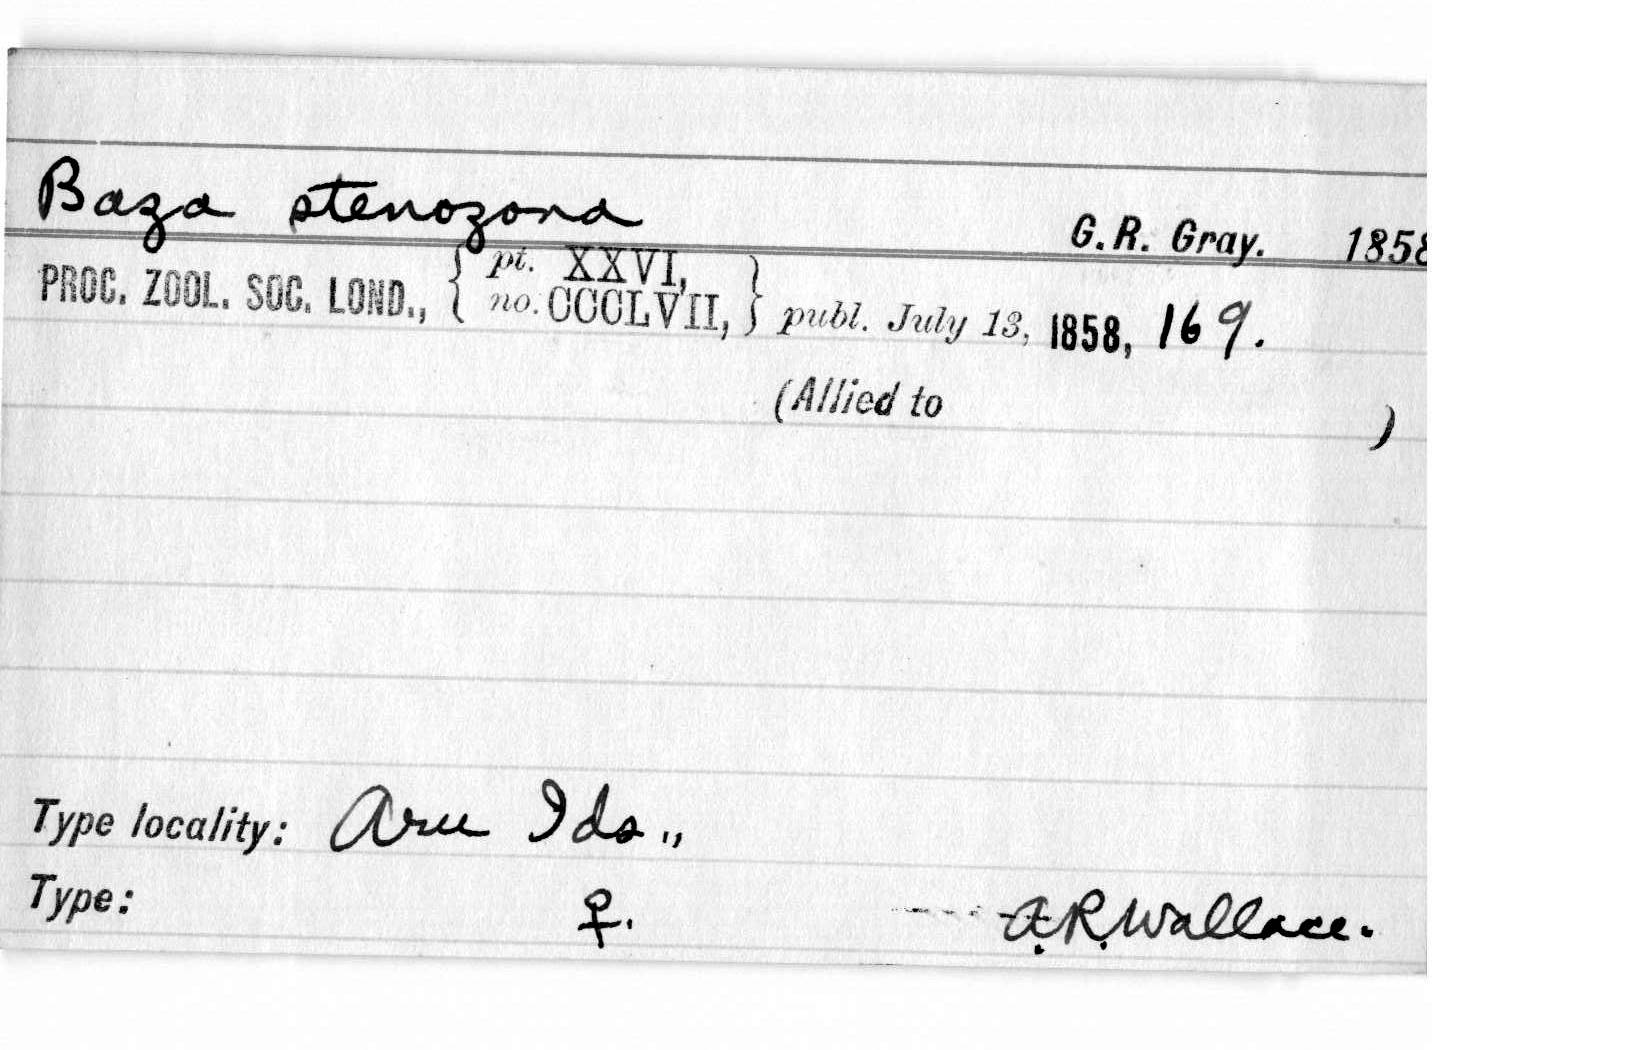 Baza stenozona G. R. Gray. 1858
PROC. ZOOL. SOC. LOND., { pt. XXVI, no. CCCLVII, } publ. July 13, 1858, 169.
(Allied to )
Type locality: Aru Ids.,,
Type: ♀. A.R.Wallace.